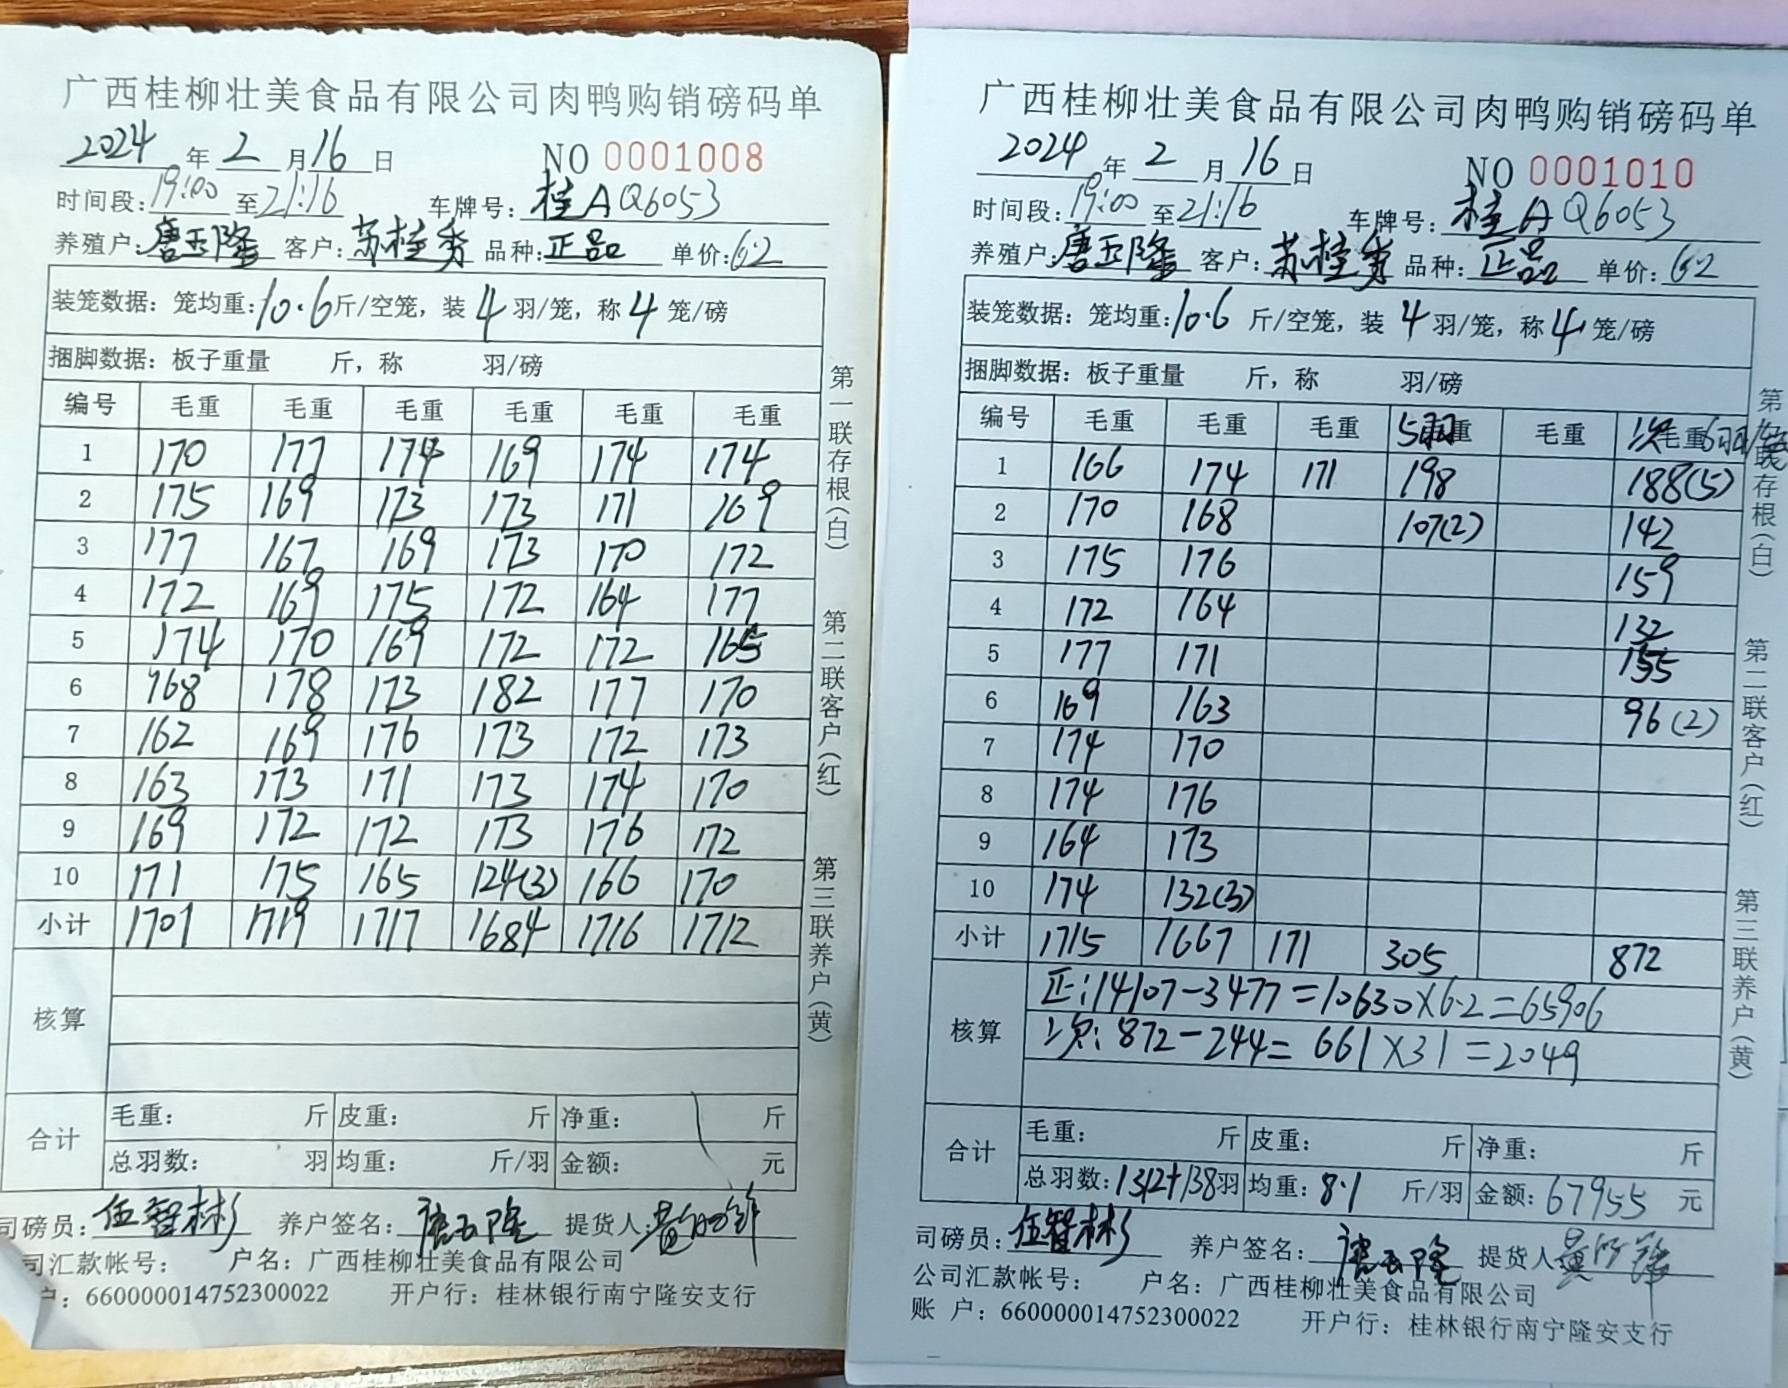 广西桂柳壮美食品有限公司肉鸭购销磅码单
2024 年 2 月 16 日 NO 0001008
时间段: 19:00 至 21:16 车牌号: 桂A Q6053
养殖户: 唐玉隆 客户: 苏桂秀 品种: 正品 单价: 6.2
装笼数据: 笼均重: 10.6 斤/空笼, 装 4 羽/笼, 称 4 笼/磅
捆脚数据: 板子重量 斤, 称 羽/磅
编号 毛重 毛重 毛重 毛重 毛重 毛重
1 170 177 174 169 174 174
2 175 169 173 173 171 169
3 177 167 169 173 170 172
4 172 169 175 172 164 177
5 174 170 169 172 172 165
6 168 178 173 182 177 170
7 162 169 176 173 172 173
8 163 173 171 173 174 170
9 169 172 172 173 176 172
10 171 175 165 124(3) 166 170
小计 1701 1719 1717 1684 1716 1712
核算
合计 毛重: 斤 皮重: 斤 净重: 斤
总羽数: 羽 均重: 斤/羽 金额: 元
司磅员: 伍智彬 养户签名: 唐玉隆 提货人:
司汇款帐号: 户名: 广西桂柳壮美食品有限公司
户: 660000014752300022 开户行: 桂林银行南宁隆安支行
第一联存根(白) 第二联客户(红) 第三联养户(黄)
广西桂柳壮美食品有限公司肉鸭购销磅码单
2024 年 2 月 16 日 NO 0001010
时间段: 19:00 至 21:16 车牌号: 桂A Q6053
养殖户: 唐玉隆 客户: 苏桂秀 品种: 正品 单价: 6.2
装笼数据: 笼均重: 10.6 斤/空笼, 装 4 羽/笼, 称 4 笼/磅
捆脚数据: 板子重量 斤, 称 羽/磅
编号 毛重 毛重 毛重 5羽重 毛重 次毛重6羽/笼
1 166 174 171 198 188(5)
2 170 168 107(2) 142
3 175 176 159
4 172 164 132
5 177 171 155
6 169 163 96(2)
7 174 170
8 174 176
9 164 173
10 174 132(3)
小计 1715 1667 171 305 872
核算 正:14107-3477=10630×6.2=65906
次:872-244=661×31=2049
合计 毛重: 斤 皮重: 斤 净重: 斤
总羽数: 1312+138羽 均重: 8.1 斤/羽 金额: 67955 元
司磅员: 伍智彬 养户签名: 唐玉隆 提货人
公司汇款帐号: 户名: 广西桂柳壮美食品有限公司
账 户: 660000014752300022 开户行: 桂林银行南宁隆安支行
第一联存根(白) 第二联客户(红) 第三联养户(黄)